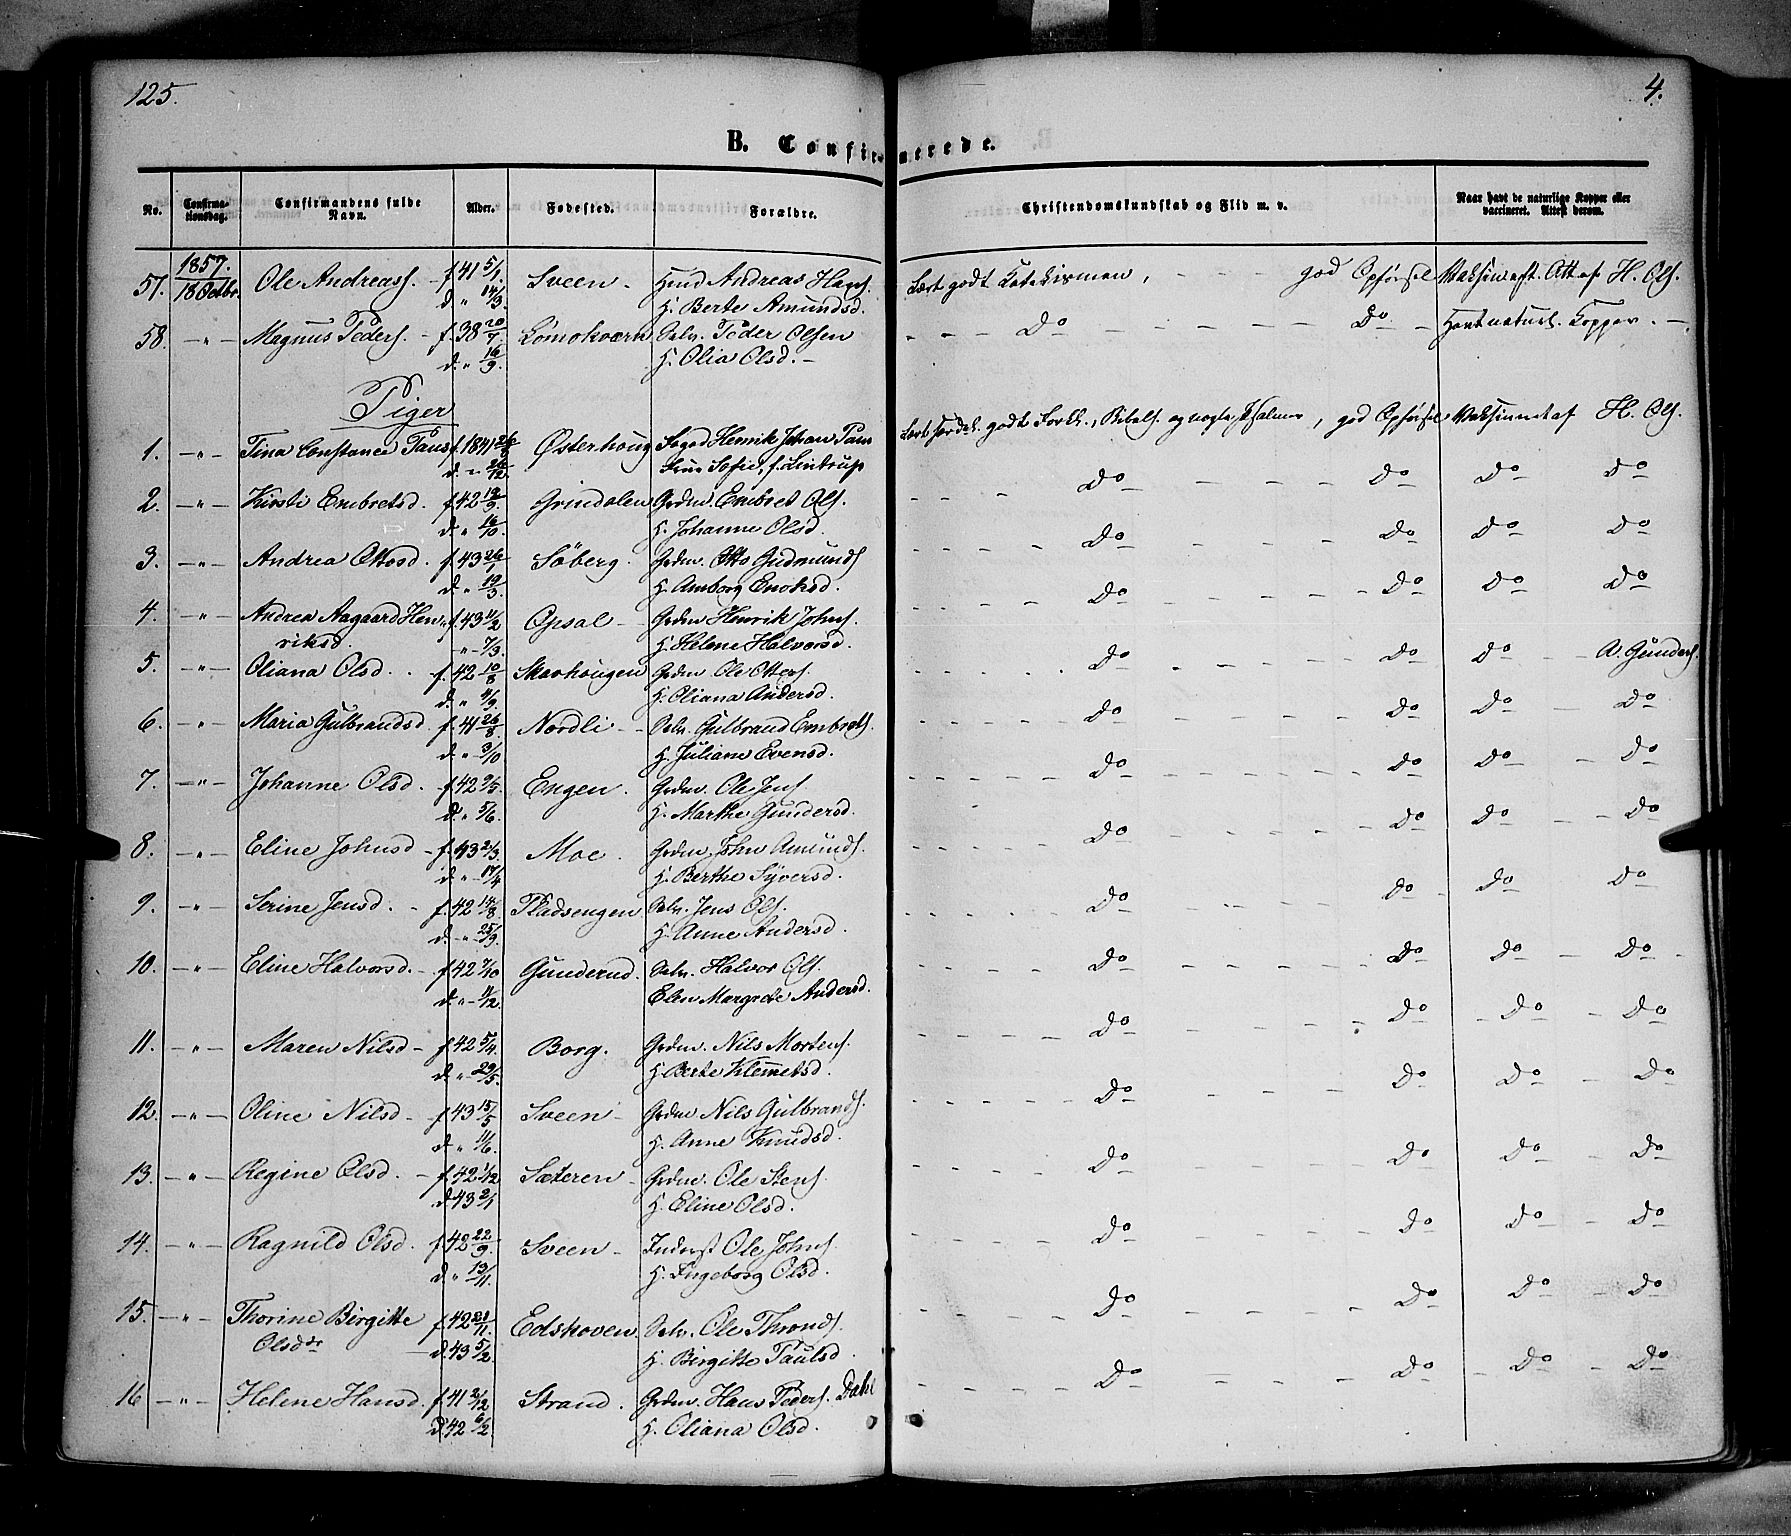 125.
4.
B. Confirmerede.
No.
Confirma-
tionsdag.
Confirmandens fulde
Navn.
Alder.
Fødested.
Forældre.
Christendomskundskab og Flid m. v.
Naar havt de naturlige Kopper eller
vaccineret. Attest derom.
1857.
57. 18 Octbr. Ole Andreass. f. 41 5/1 Sveen Andreas Hans. Lært godt Katekismen, god Opførsel Att af H. Ols.
d. " 14/3 H. Berte Amundsd.
58. — " — Magnus Peders. f. 38 20/7 Lømokværn Selv. Peder Olsen Do Do Havt naturl. Kopper.
d. " 16/9. H. Olia Olsd.
Piger
1. — " — Tina Constance Paus f. 1841 Østerhoug Henrik Johan Paus godt Forkl., Bibelh. og nogle Psalmer, god Opførsel Vaksineret af H. Ols.
d. " 26/12. Sofie, f. Lintrup
2. — " — Kirsti Embretsd. f. 42 19/9. Grindalen Grdm. Embret Ols. Do Do Do Do
d. " 16/10 H. Johanne Olsd.
3. — " — Andrea Ottosd. f. 43 26/1 Söberg. Grdm. Otto Gudmunds. Do Do Do Do
d. " 19/3. H. Amborg Enoksd.
4. — " — Andrea Aagaard Hen- f. 43 11/2 Opsal Grdm Henrik Johns. Do Do Do Do
riksd. " 7/3. H. Helene Halvorsd.
5. — " — Oliana Olsd. f. 42 10/8 Skarhougen Grdm Ole Otters. Do Do Do A. Gunders.
d. " 4/9. H. Oliana Andersd.
6. — " — Maria Gulbrandsd. f. 41 26/8. Nordli Selv. Gulbrand Embrets. Do Do Do Do
d. " 3/10 H. Juliane Evensd.
7. — " — Johanne Olsd. f. 42 9/5. Engen. Grdm. Ole Jens. Do Do Do Do
d. " 5/6. H. Marthe Gundersd.
8. — " — Eline Johnsd f. 43 2/3. Moe. Grdm. John Amunds. Do Do Do Do
d. " 17/4 H. Berthe Syversd.
9. — " — Serine Jensd. f. 42 14/8. Pladsengen Selv. Jens Ols. Do Do Do Do
d. " 25/9. H. Anne Andersd.
10. — " — Eline Halvorsd. f. 42 7/10 Gunderud. Selv. Halvor Ols. Do Do Do Do
d. " 11/12. Elen Margrete Andersd.
11. — " — Maren Nilsd f. 42 5/4. Borg. Grdm. Nils Mortens. Do Do Do Do
d. " 29/5. H. Berte Klemetsd.
12. — " — Oline Nilsd f. 43 15/5 Sveen Grdm Nils Gulbrands. Do Do Do Do
d. " 11/6. H. Anne Knudsd.
13. — " — Regine Olsd. f. 42 1/12 Sæteren Grdm. Ole Stens. Do Do Do Do
d. 43 2/1 H. Eline Olsd.
14. — " — Ragnild Olsd. f. 42 22/9. Sveen Inderst Ole Johns. Do Do Do Do
d. " 13/11. H. Ingeborg Olsd.
15. — " — Thorine Birgitte f. 42 21/11. Edshoven. Selv. Ole Thronds. Do Do Do Do
Olsdtr d. 43 5/2. H. Birgitte Paulsd.
16 — " — Helene Hansd. f. 41 2/12 Strand. Grdm. Hans Peders. Dahl Do Do Do Do
d. 42 6/2 H. Oliana Olsd.